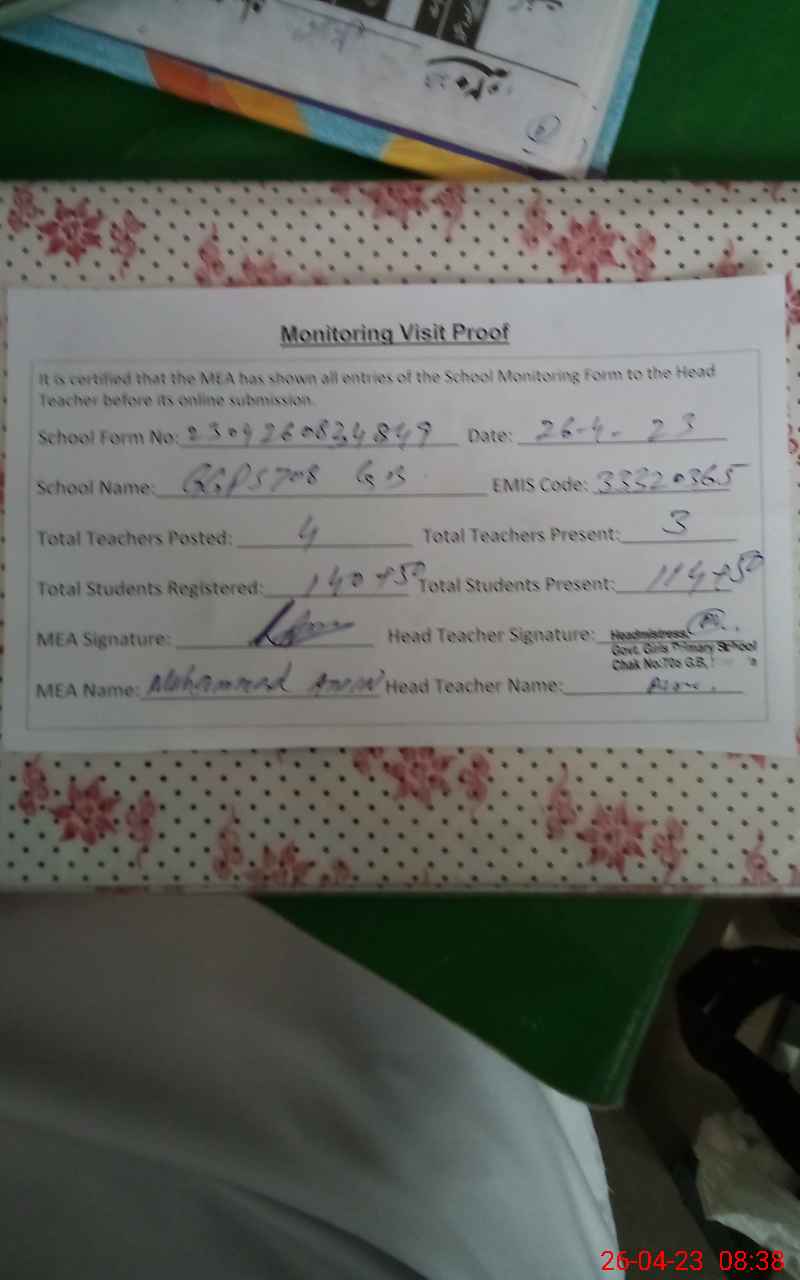 Monitoring Visit Proof
It is certified that the MEA has shown all entries of the School Monitoring Form to the Head
Teacher before its online submission.
School Form No: 2304260834849 Date: 26-4-23
School Name: GGPS 708 GB EMIS Code: 33320365
Total Teachers Posted: 4 Total Teachers Present: 3
Total Students Registered: 140+50 Total Students Present: 114+50
MEA Signature: Head Teacher Signature:
Headmistress,
Govt. Girls Primary School
Chak No.708 G.B,
MEA Name: Mohammad Amin Head Teacher Name:
26-04-23 08:38